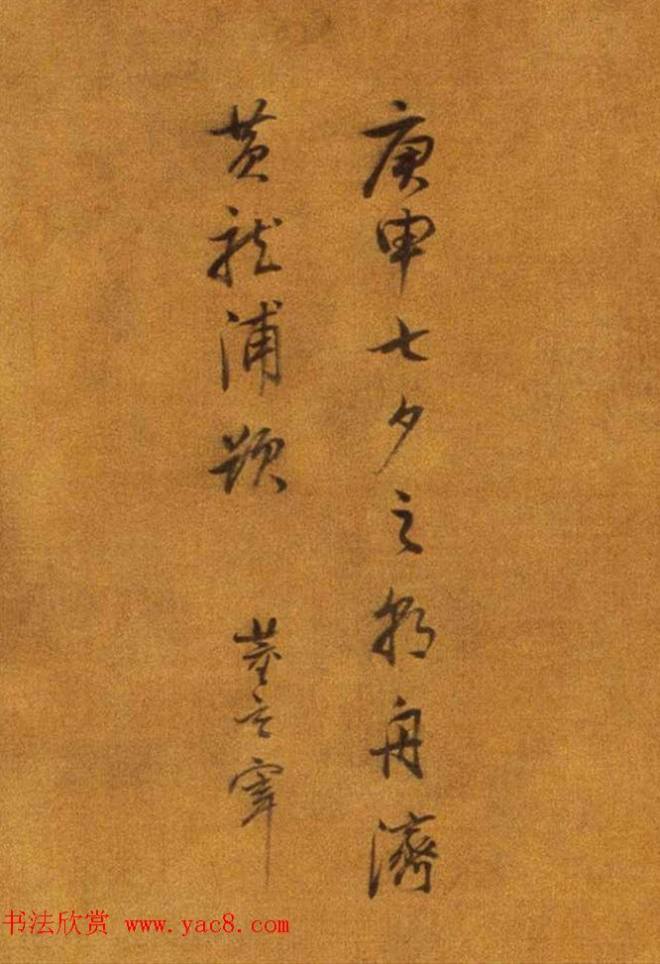 庚申七夕之朝舟济
黄龙浦题
董玄宰
书法欣赏 www.yac8.com